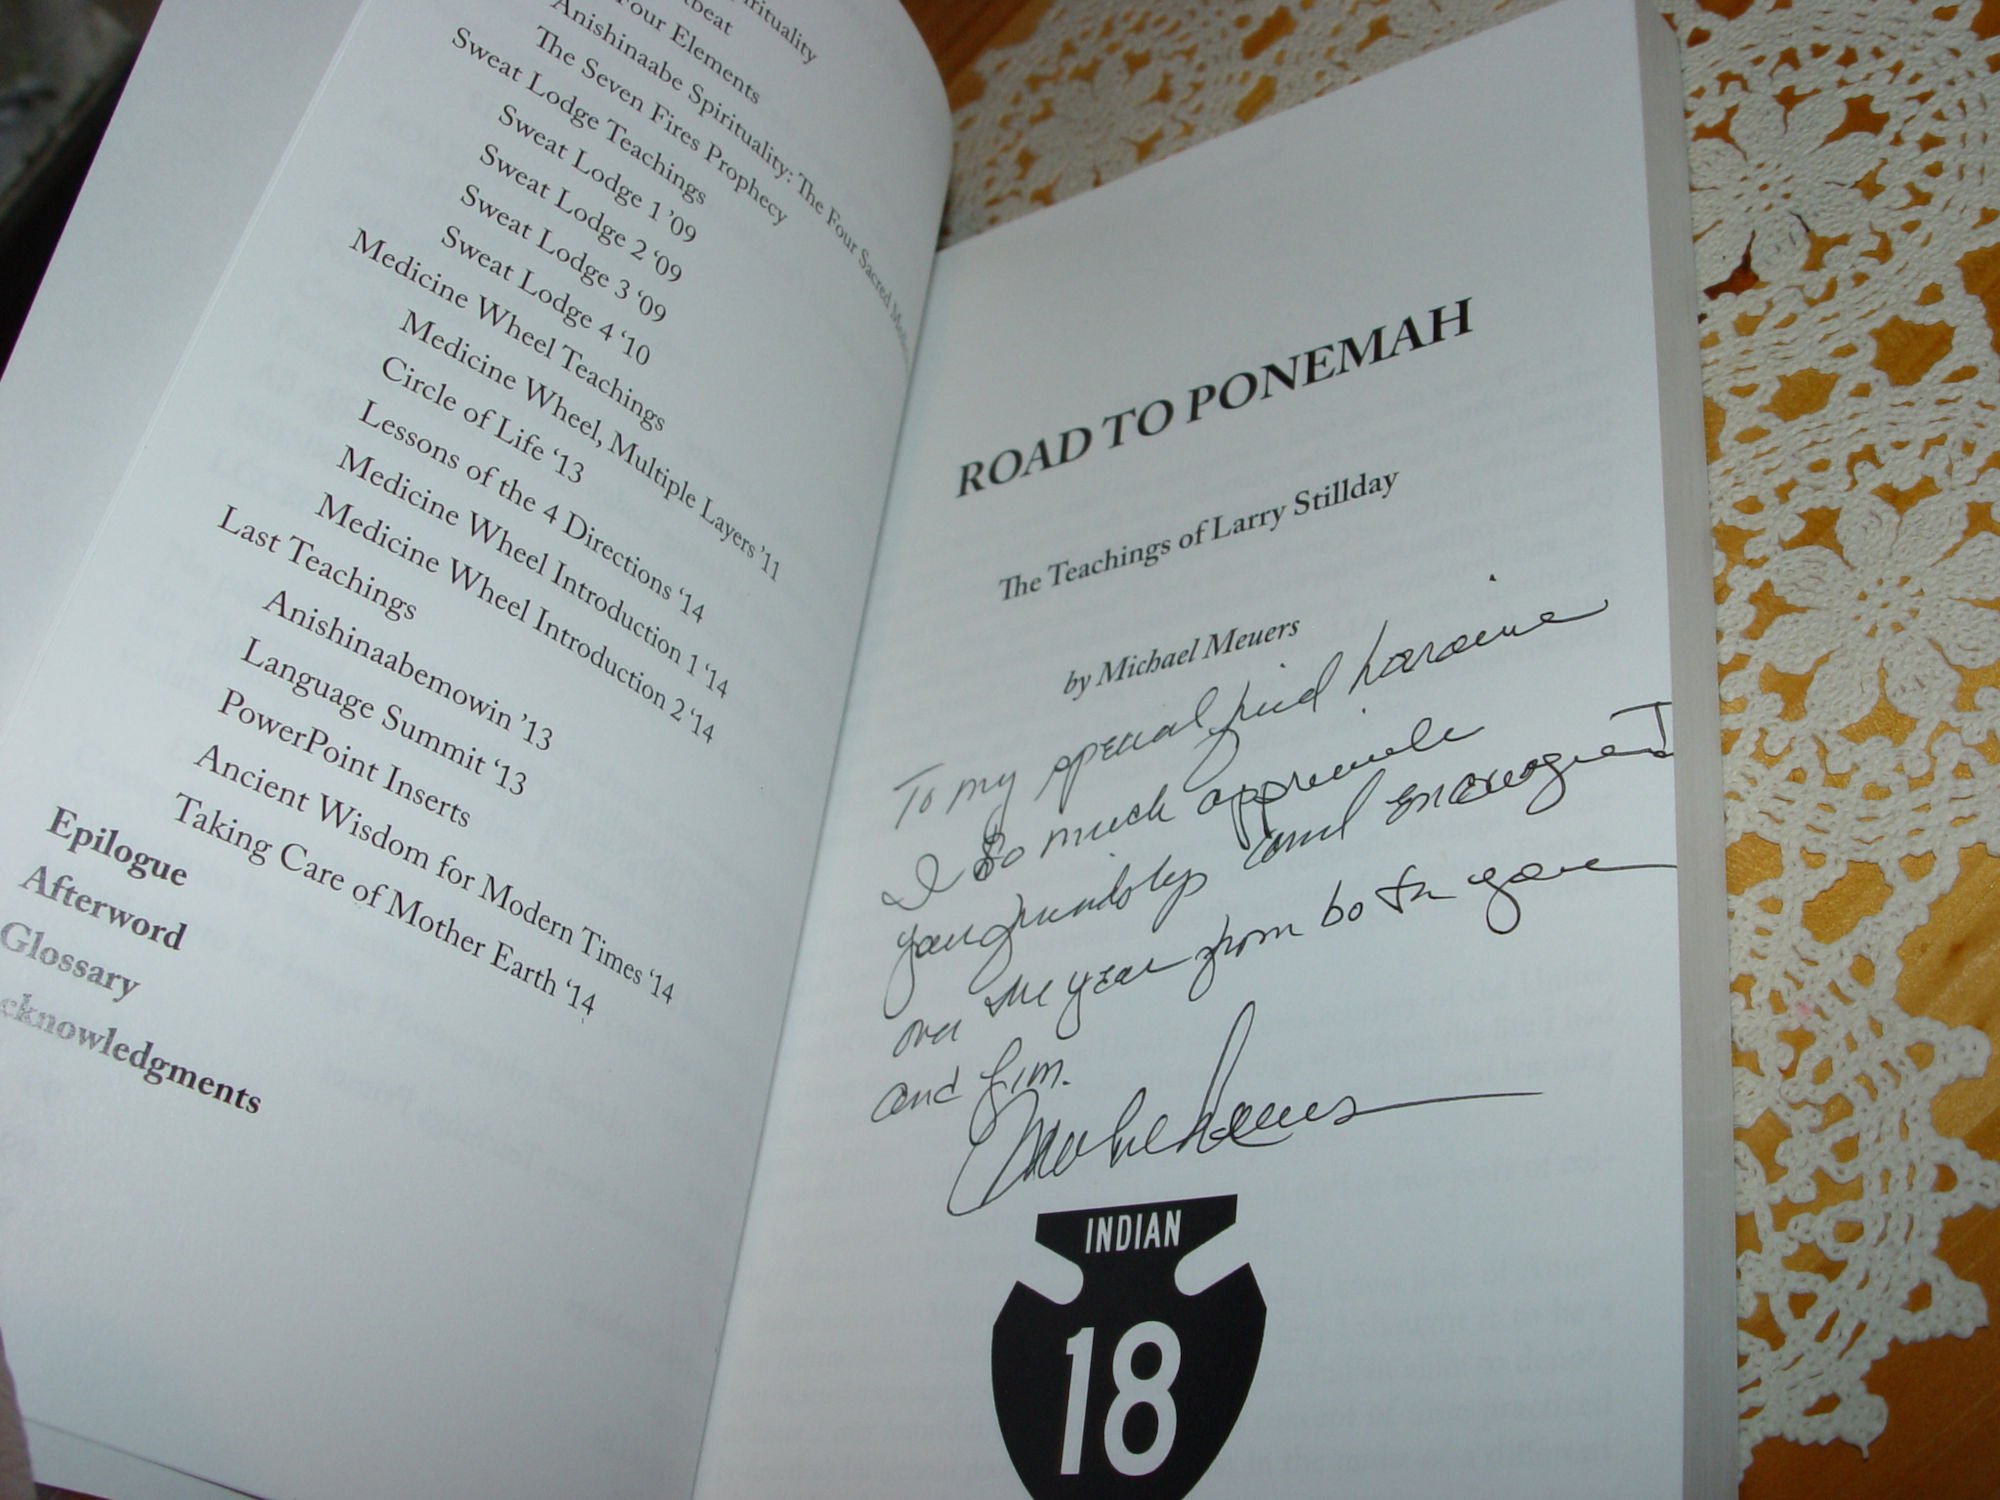 rituality
tbeat
Four Elements
Anishinaabe Spirituality: The Four Sacred
The Seven Fires Prophecy
Sweat Lodge Teachings
Sweat Lodge 1 ’09
Sweat Lodge 2 ‘09
Sweat Lodge 3 ‘09
Sweat Lodge 4 ‘10
Medicine Wheel Teachings
Medicine Wheel, Multiple Layers ’11
Circle of Life ‘13
Lessons of the 4 Directions ‘14
Medicine Wheel Introduction 1 ‘14
Medicine Wheel Introduction 2 ‘14
Last Teachings
Anishinaabemowin ’13
Language Summit ‘13
PowerPoint Inserts
Ancient Wisdom for Modern Times ‘14
Taking Care of Mother Earth ‘14
Epilogue
Afterword
Glossary
cknowledgments
ROAD TO PONEMAH
The Teachings of Larry Stillday
by Michael Meuers
To my special friend Loraine
I so much appreciate
your friendship and
over the year from both you
and Jim.
INDIAN
18